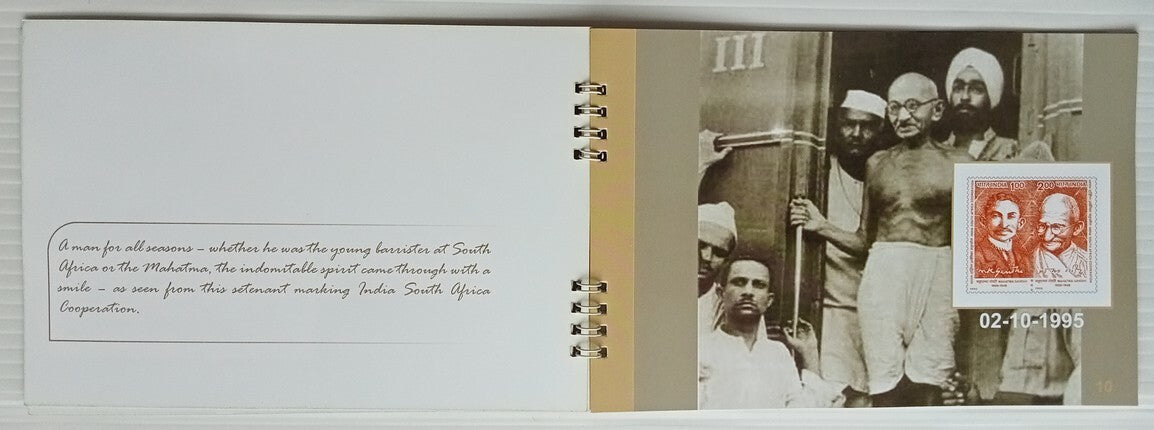 A man for all seasons – whether he was the young barrister at South
Africa or the Mahatma, the indomitable spirit came through with a
smile – as seen from this setenant marking India South Africa
Cooperation.
III
भारत INDIA 1.00 2.00 भारत INDIA
M.K. Gandhi
02-10-1995
10